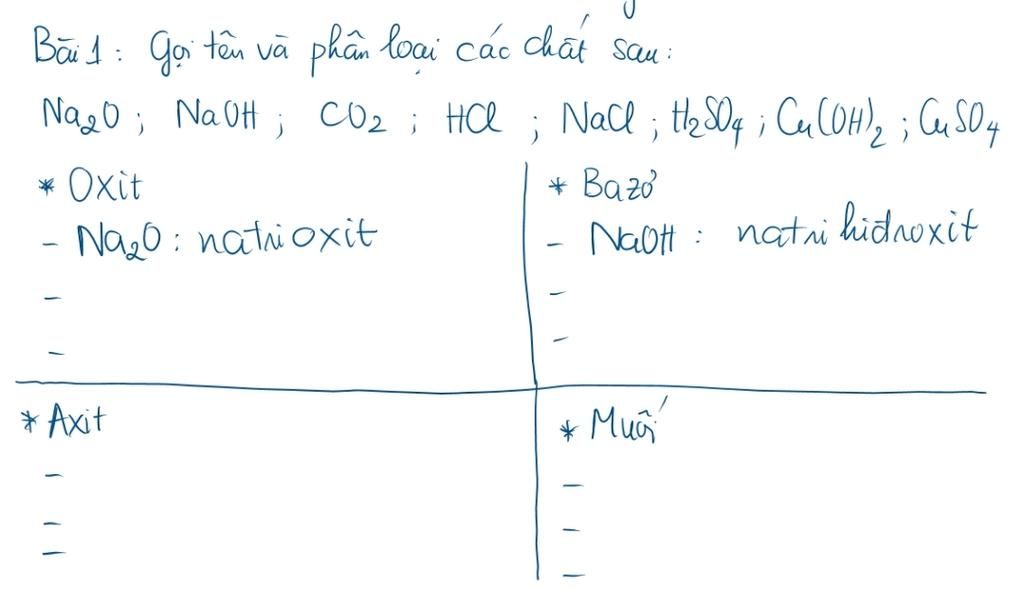 Bài 1: Gọi tên và phân loại các chất sau:
Na₂O ; NaOH ; CO₂ ; HCl ; NaCl ; H₂SO₄ ; Cu(OH)₂ ; CuSO₄
* Oxit
- Na₂O : natri oxit
-
-
* Bazơ
- NaOH : natri hiđroxit
-
-
* Axit
-
-
-
* Muối
-
-
-